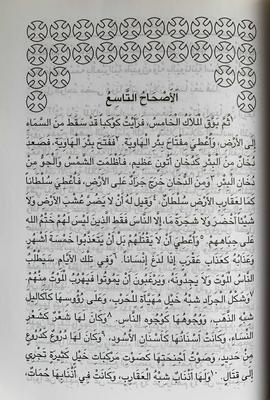 اَلأَصْحَاحُ التَّاسِعُ
١ثُمَّ بَوَّقَ الْمَلاَكُ الْخَامِسُ، فَرَأَيْتُ كَوْكَبًا قَدْ سَقَطَ مِنَ السَّمَاءِ
إِلَى الأَرْضِ، وَأُعْطِيَ مِفْتَاحَ بِئْرِ الْهَاوِيَةِ. ٢فَفَتَحَ بِئْرَ الْهَاوِيَةِ، فَصَعِدَ
دُخَانٌ مِنَ الْبِئْرِ كَدُخَانِ أَتُونٍ عَظِيمٍ، فَأَظْلَمَتِ الشَّمْسُ وَالْجَوُّ مِنْ
دُخَانِ الْبِئْرِ. ٣وَمِنَ الدُّخَانِ خَرَجَ جَرَادٌ عَلَى الأَرْضِ، فَأُعْطِيَ سُلْطَانًا
كَمَا لِعَقَارِبِ الأَرْضِ سُلْطَانٌ. ٤وَقِيلَ لَهُ أَنْ لاَ يَضُرَّ عُشْبَ الأَرْضِ وَلاَ
شَيْئًا أَخْضَرَ وَلاَ شَجَرَةً مَا، إِلاَّ النَّاسَ فَقَطِ الَّذِينَ لَيْسَ لَهُمْ خَتْمُ اللهِ
عَلَى جِبَاهِهِمْ. ٥وَأُعْطِيَ أَنْ لاَ يَقْتُلَهُمْ بَلْ أَنْ يَتَعَذَّبُوا خَمْسَةَ أَشْهُرٍ.
وَعَذَابُهُ كَعَذَابِ عَقْرَبٍ إِذَا لَدَغَ إِنْسَانًا. ٦وَفِي تِلْكَ الأَيَّامِ سَيَطْلُبُ
النَّاسُ الْمَوْتَ وَلاَ يَجِدُونَهُ، وَيَرْغَبُونَ أَنْ يَمُوتُوا فَيَهْرُبُ الْمَوْتُ مِنْهُمْ.
٧وَشَكْلُ الْجَرَادِ شِبْهُ خَيْلٍ مُهَيَّأَةٍ لِلْحَرْبِ، وَعَلَى رُؤُوسِهَا كَأَكَالِيلَ
شِبْهِ الذَّهَبِ، وَوُجُوهُهَا كَوُجُوهِ النَّاسِ. ٨وَكَانَ لَهَا شَعْرٌ كَشَعْرِ
النِّسَاءِ، وَكَانَتْ أَسْنَانُهَا كَأَسْنَانِ الأُسُودِ، ٩وَكَانَ لَهَا دُرُوعٌ كَدُرُوعٍ
مِنْ حَدِيدٍ، وَصَوْتُ أَجْنِحَتِهَا كَصَوْتِ مَرْكَبَاتِ خَيْلٍ كَثِيرَةٍ تَجْرِي
إِلَى قِتَالٍ. ١٠وَلَهَا أَذْنَابٌ شِبْهُ الْعَقَارِبِ، وَكَانَتْ فِي أَذْنَابِهَا حُمَاتٌ،